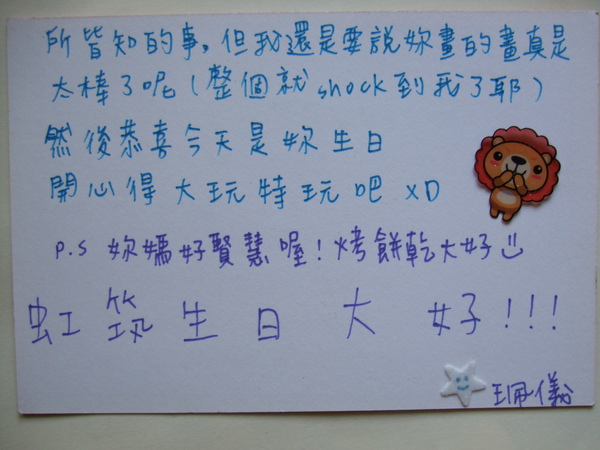 所皆知的事,但我還是要說妳畫的畫真是
太棒了呢(整個就shock到我了耶)
然後恭喜今天是妳生日
開心得大玩特玩吧 XD
P.S 妳媽好賢慧喔!烤餅乾大好
虹筑生日大好!!!
珮儀